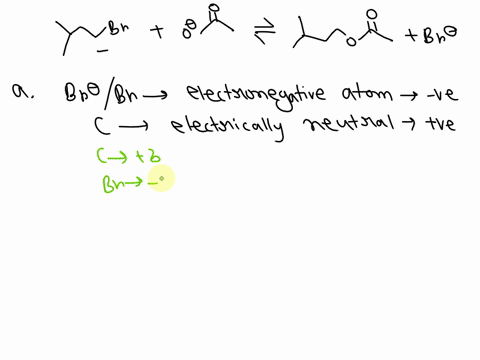 Br + O⊖ O ⇌ O O + Br⊖
a. Br⊖/Br → electronegative atom → -ve
C → electrically neutral → +ve
C → +δ
Br → -